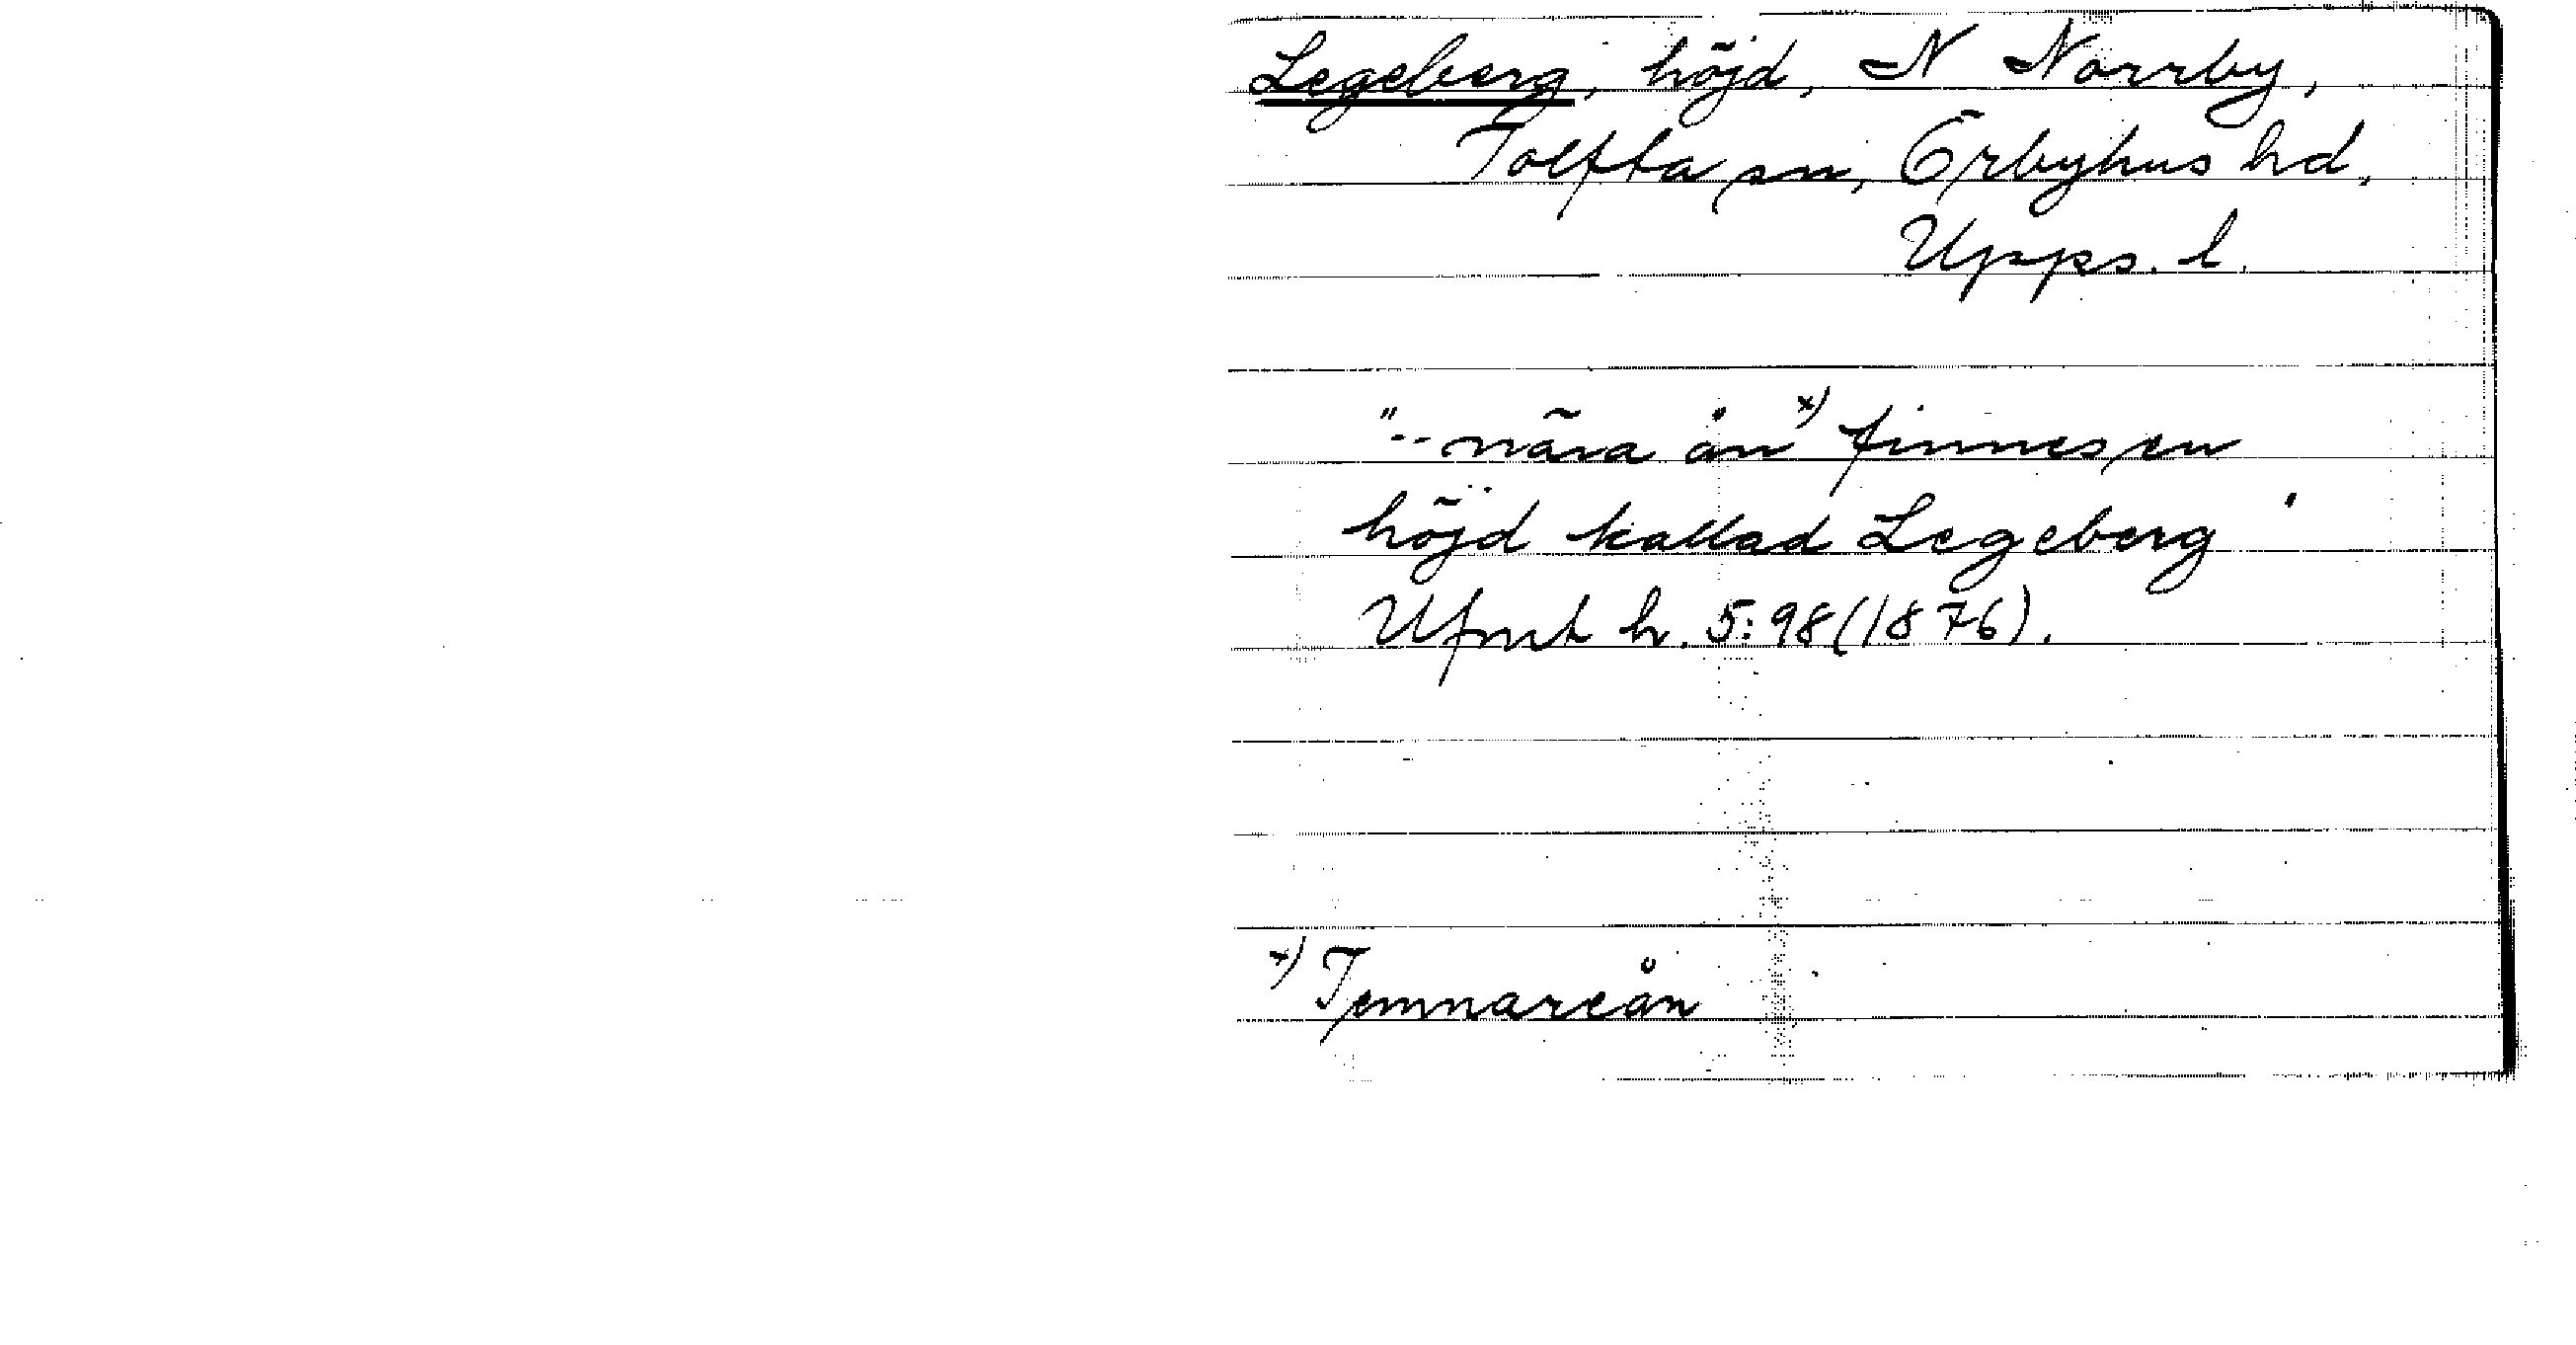 Legeberg, höjd, N Norrby,
Tolfta sn, Örbyhus hd,
Upps. l.
"-- nära ån x) finnes en
höjd kallad Legeberg"
Ufmt h. 5:98 (1876).
x) Temnareån